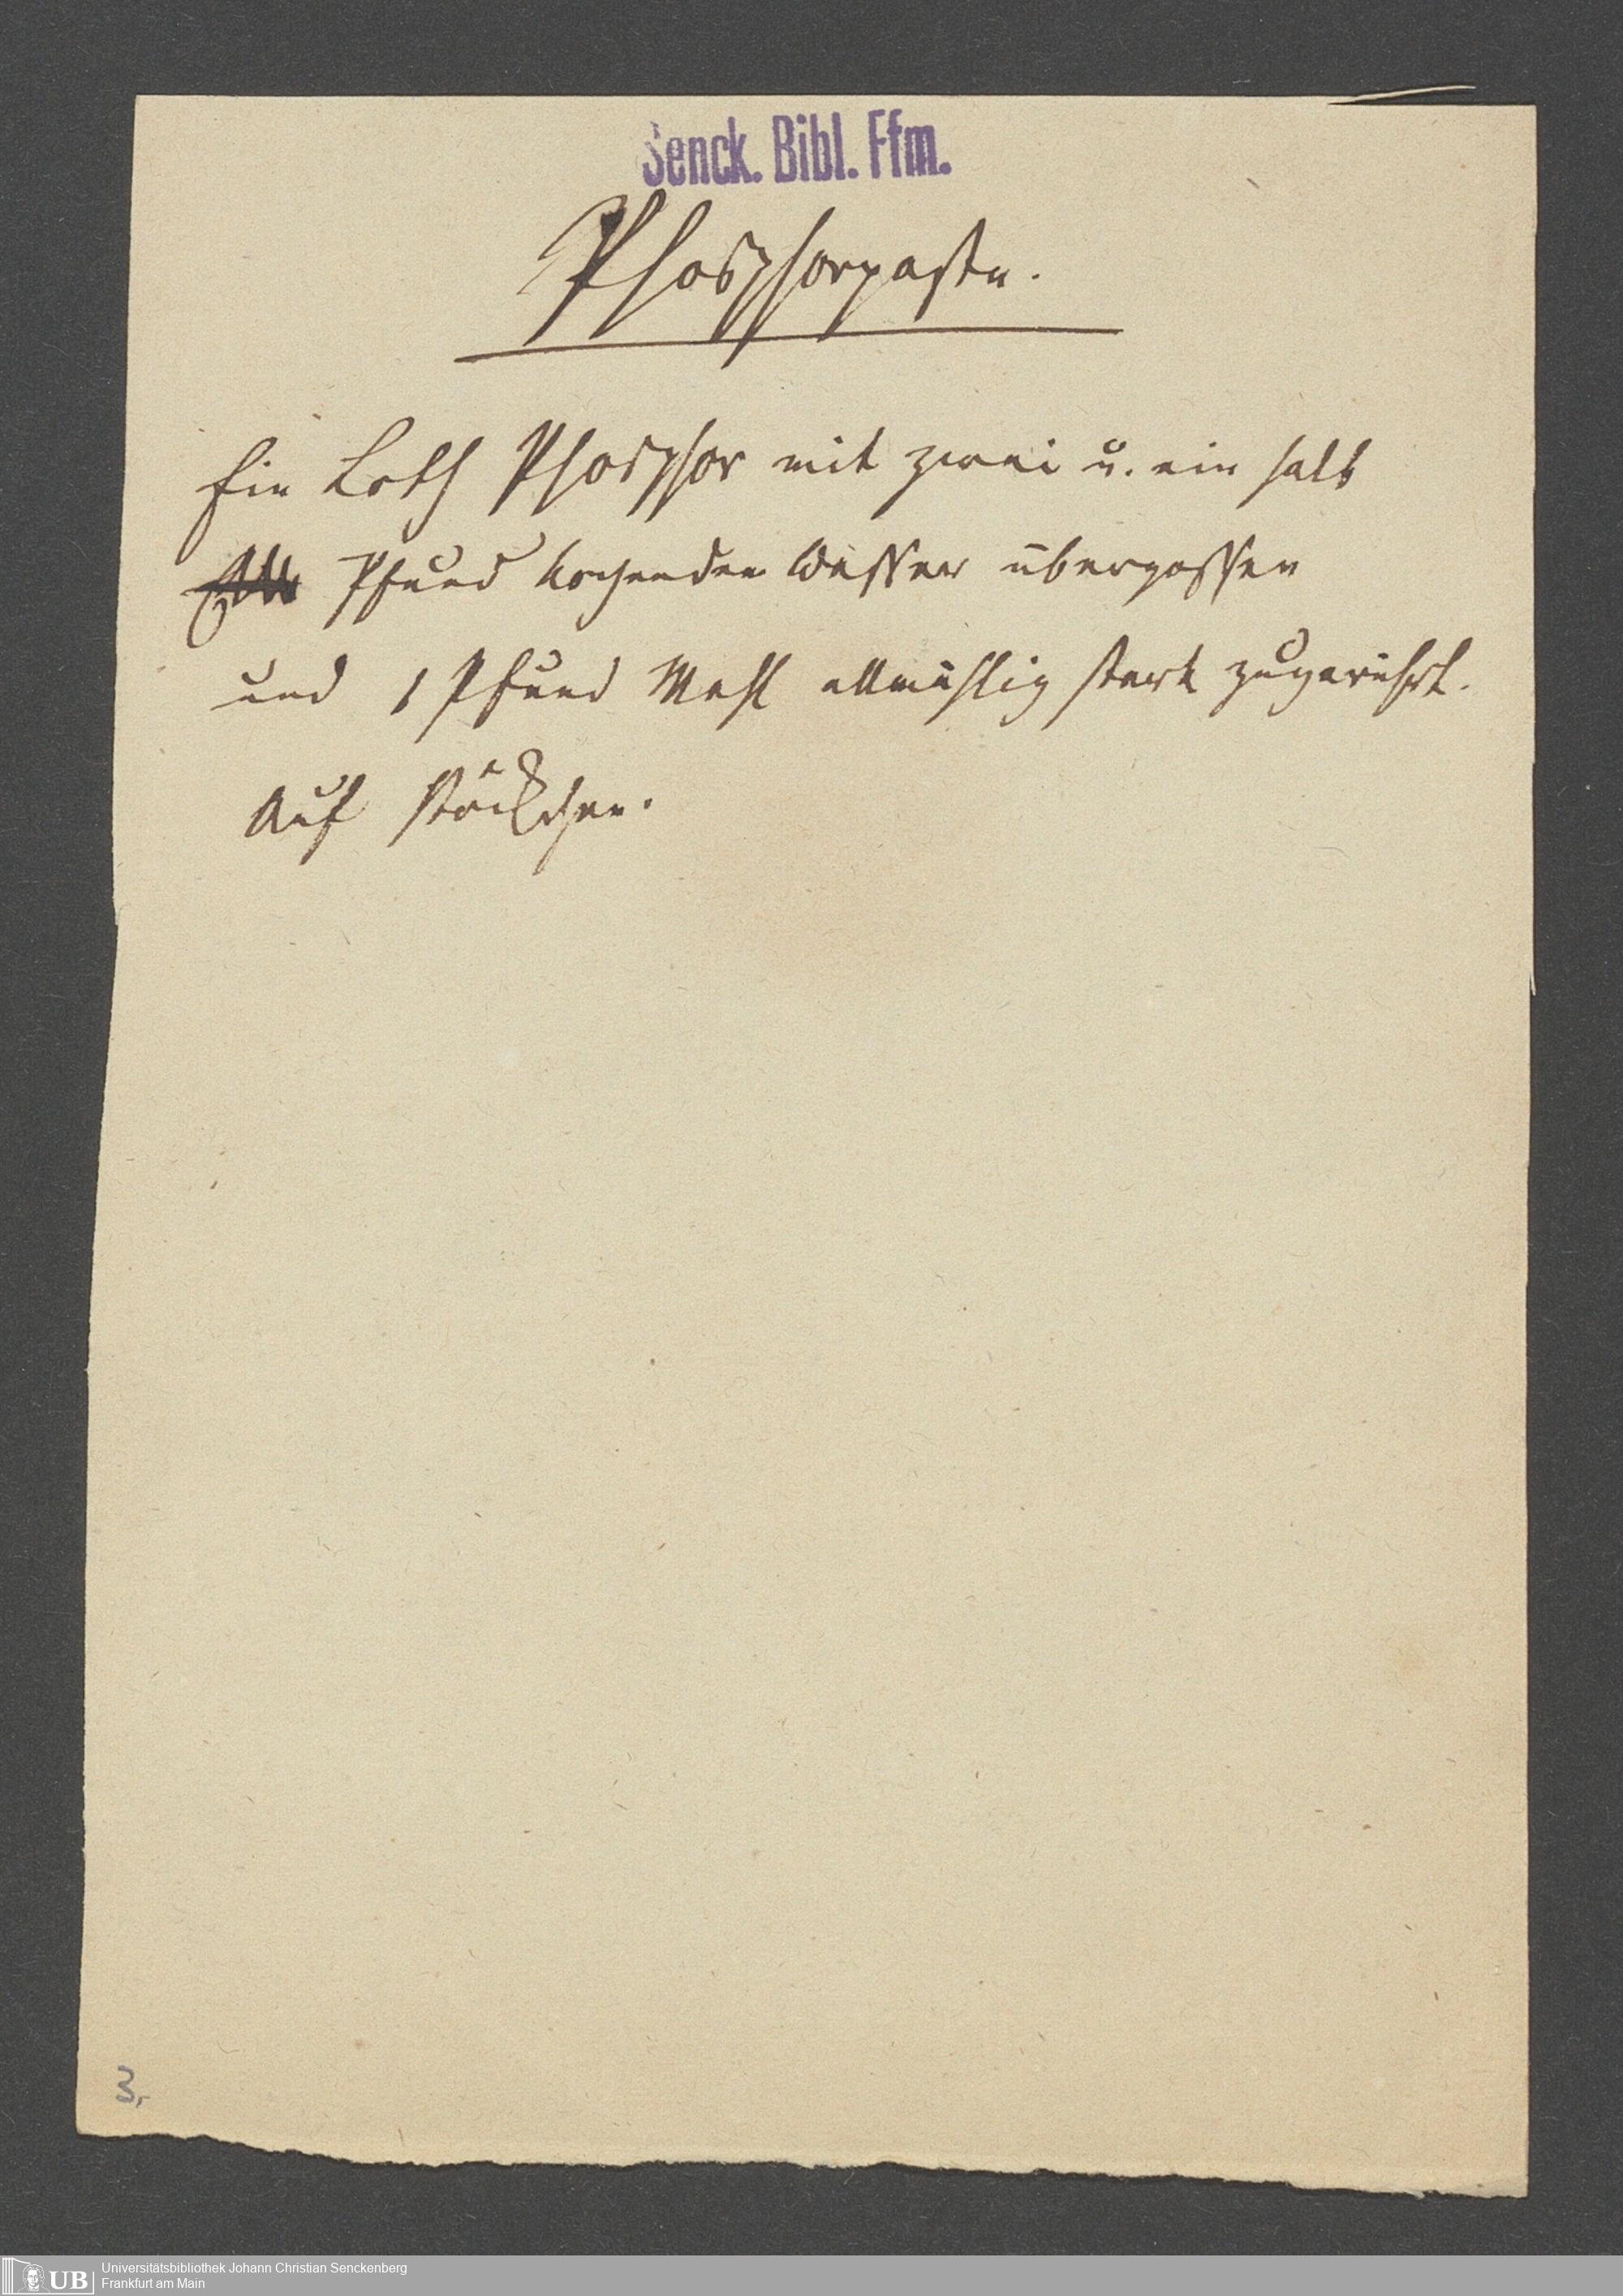 Senck. Bibl. Ffm.
Phosphorpaste.
Ein Loth Phosphor mit zwei u. ein halb
Pfund kochenden Wasser übergossen
und 1 Pfund Mehl allmählig stark zugerührt.
Auf Stöckchen.
3,
UB Universitätsbibliothek Johann Christian Senckenberg
Frankfurt am Main